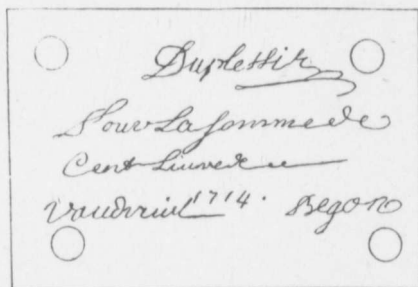 Duplessis
Pour La somme de
Cent Liuvre
Vaudreuil 1714. Begon